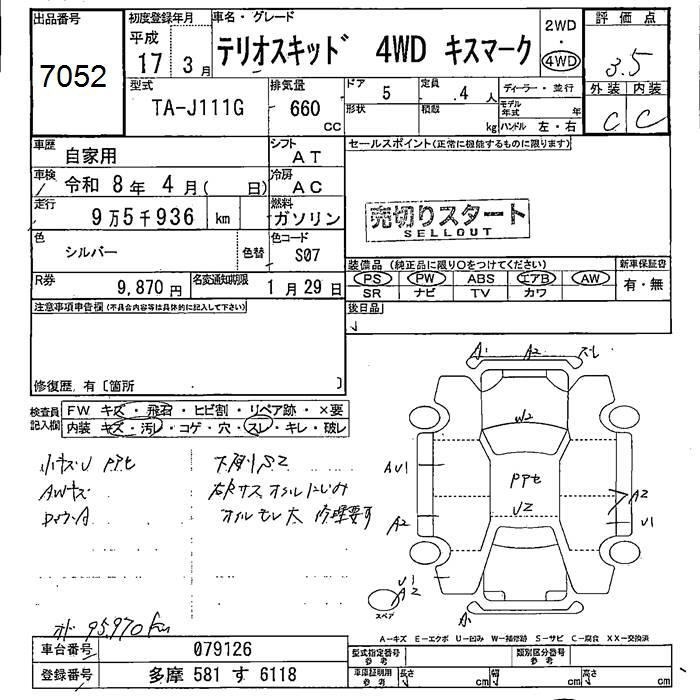 出品番号
7052
初度登録年月
平成
17 3月
車名・グレード
テリオスキッド 4WD キスマーク
2WD
・
4WD
評価点
3.5
外装 内装
C C
型式
TA-J111G
排気量
660
CC
ドア 5
定員 .4 人
ディーラー・並行
形状
積載 kg
モデル年式 年
ハンドル 左・右
車歴
自家用
シフト
AT
車検
令和 8年 4月( 日)
冷房
AC
走行
9万5千936 km
燃料
ガソリン
色
シルバー
色替
色コード
S07
R券
9,870 円
名変通知期限
1月29日
セールスポイント(正常に機能するものに限ります)
売切りスタート
SELLOUT
装備品(純正品に限り○をつけてください)
新車保証書
PS PW ABS エアB AW
SR ナビ TV カワ
有・無
後日品
注意事項申告欄(不具合内容等は具体的に記入して下さい)
修復歴.有〔箇所 〕
検査員記入欄
FW キズ・飛石・ヒビ割・リペア跡・×要
内装 キズ・汚レ・コゲ・穴・スレ・キレ・破レ
小キズU PPセ
AWキズ
下廻りS2
オイルモレ大 修理要す
オド 95,970km
A1 A2
W2
AU1
PPセ
A2
U2
A2
U1
U1
A2
スペア
A
A−キズ E−エクボ U−凹み W−補修跡 S−サビ C−腐食 XX−交換済
車台番号 079126
登録番号 多摩 581 す 6118
型式指定番号 参考
類別区分番号 参考
車庫証明用 参考
長さ cm 幅 cm 高さ cm